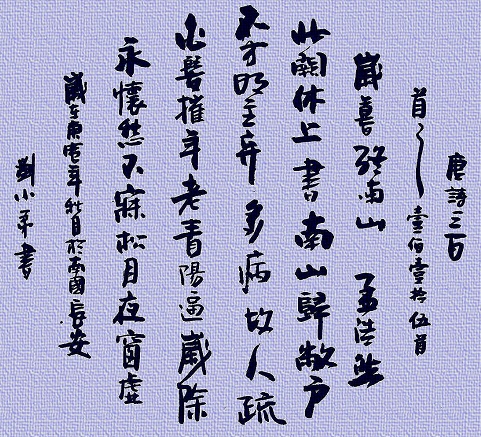 唐詩三百
首～壹佰壹拾伍首
歲暮歸南山 孟浩然
北闕休上書南山歸敝庐
不才明主弃多病故人疏
白髮摧年老青陽逼歲除
永懷愁不寐松月夜窗虛
歲在庚寅年秋月於南國長安
劉小書